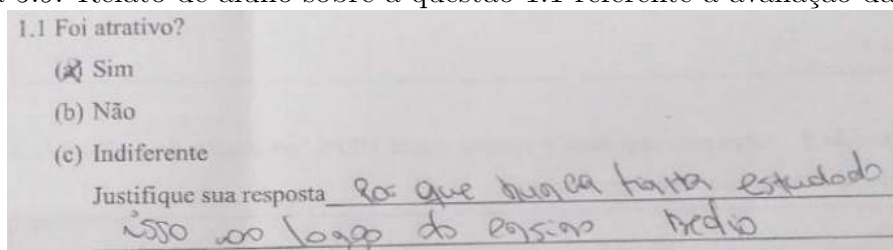 1.1 Foi atrativo?
(a) Sim
(b) Não
(c) Indiferente
Justifique sua resposta Por que nunca tinha estudado
isso ao longo do ensino médio